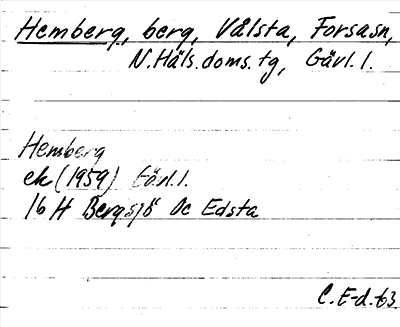 Hemberg, berg, Vålsta, Forsasn,
N.Häls.doms.tg, Gävl.l.
Hemberg
ek (1959) Gävl.l.
16 H Bergsjö Dc Edsta
C.E-d.63